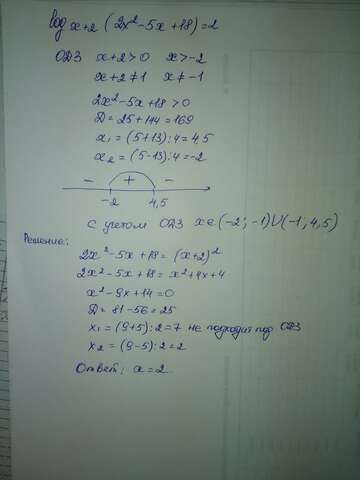 log x+2 (2x²-5x+18)=2
ОДЗ x+2>0 x>-2
x+2≠1 x≠-1
2x²-5x+18>0
D=25+144=169
x₁=(5+13):4=4,5
x₂=(5-13):4=-2
- + -
-2 4,5
с учетом ОДЗ x∈(-2;-1)U(-1;4,5)
Решение:
2x²-5x+18=(x+2)²
2x²-5x+18=x²+4x+4
x²-9x+14=0
D=81-56=25
x₁=(9+5):2=7 не подходит под ОДЗ
x₂=(9-5):2=2
Ответ: x=2